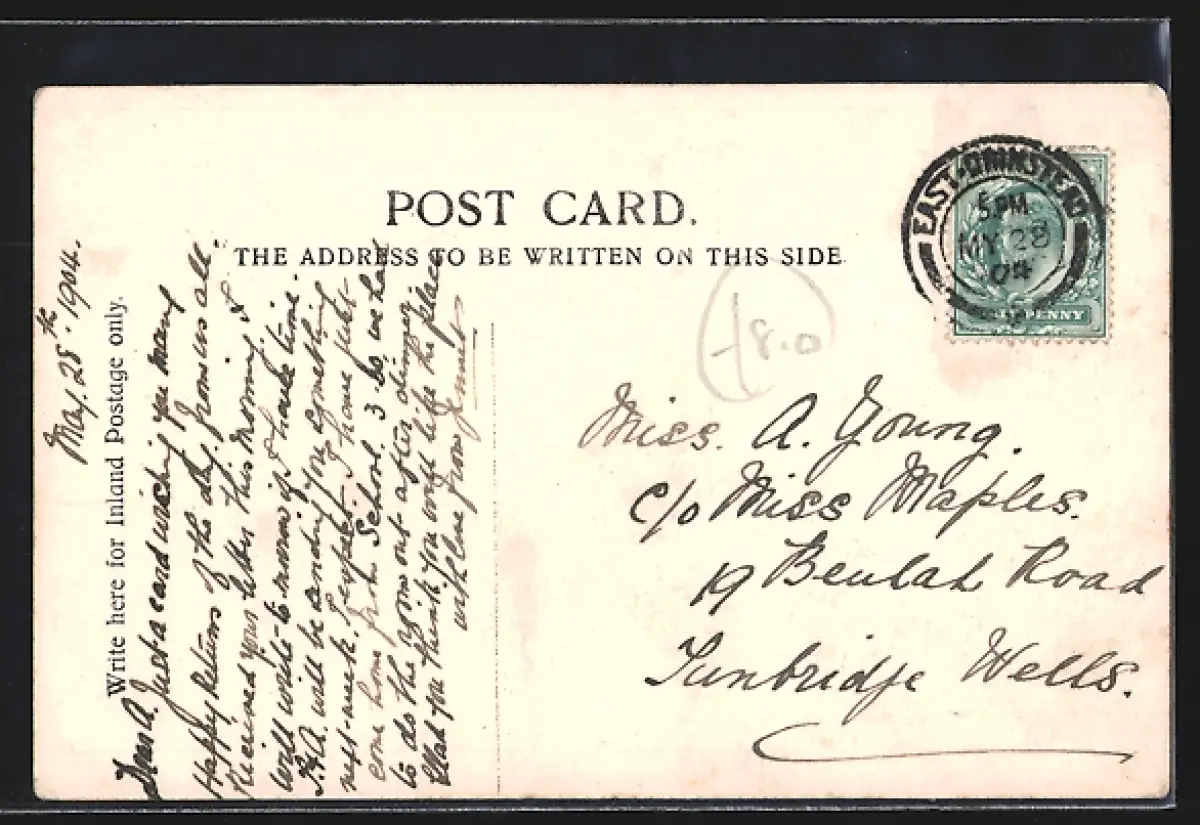 POST CARD.
THE ADDRESS TO BE WRITTEN ON THIS SIDE
EAST GRINSTEAD
5 PM
MY 28
04
HALFPENNY
8.0
Miss. A. Young.
c/o Miss Maples.
19 Beulah Road
Tunbridge Wells.
May. 28th 1904.
Write here for Inland Postage only.
Dear A. Just a card wishing you many
Happy Returns of the day, from us all.
Received your letter this morning &
will write to-morrow if I have time.
will be sending you something
next week I expect. I have just
come home from School. 3 so we had
to do the rooms out after dinner
Glad you think you will like the place
with love from